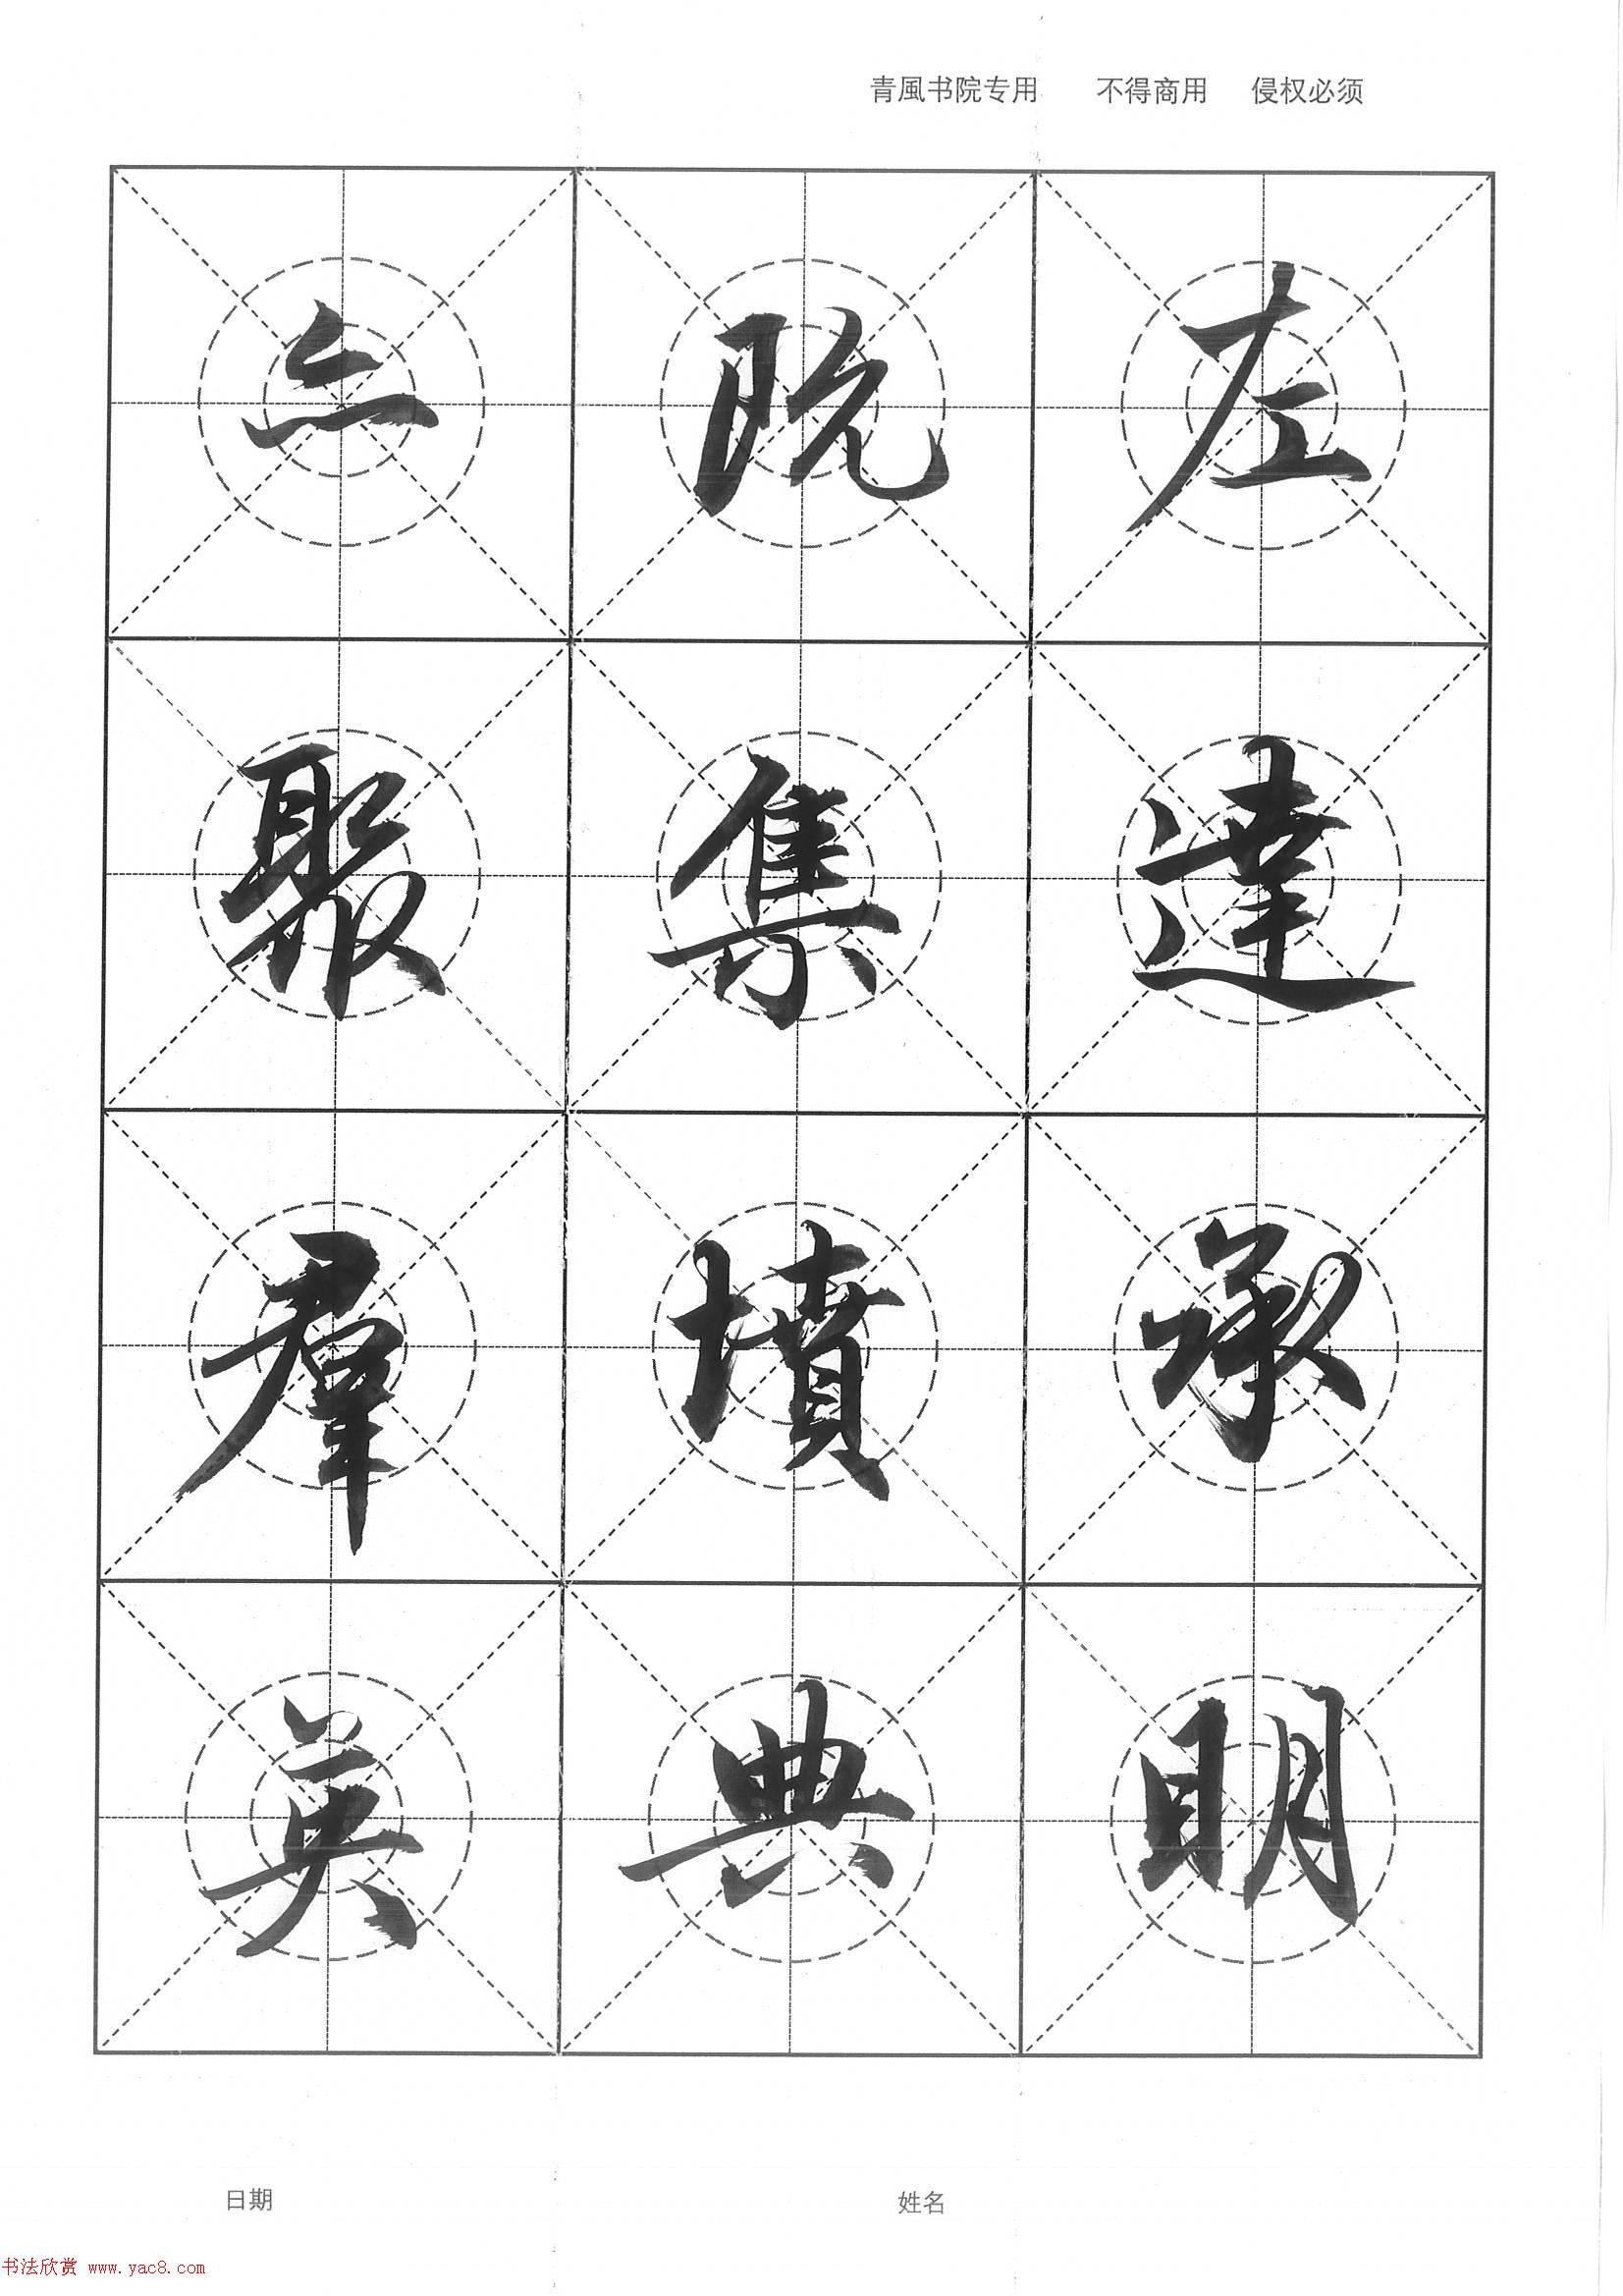 青風书院专用 不得商用 侵权必须
左達承明
既集墳典
亦聚羣英
日期 姓名
书法欣赏 www.yac8.com